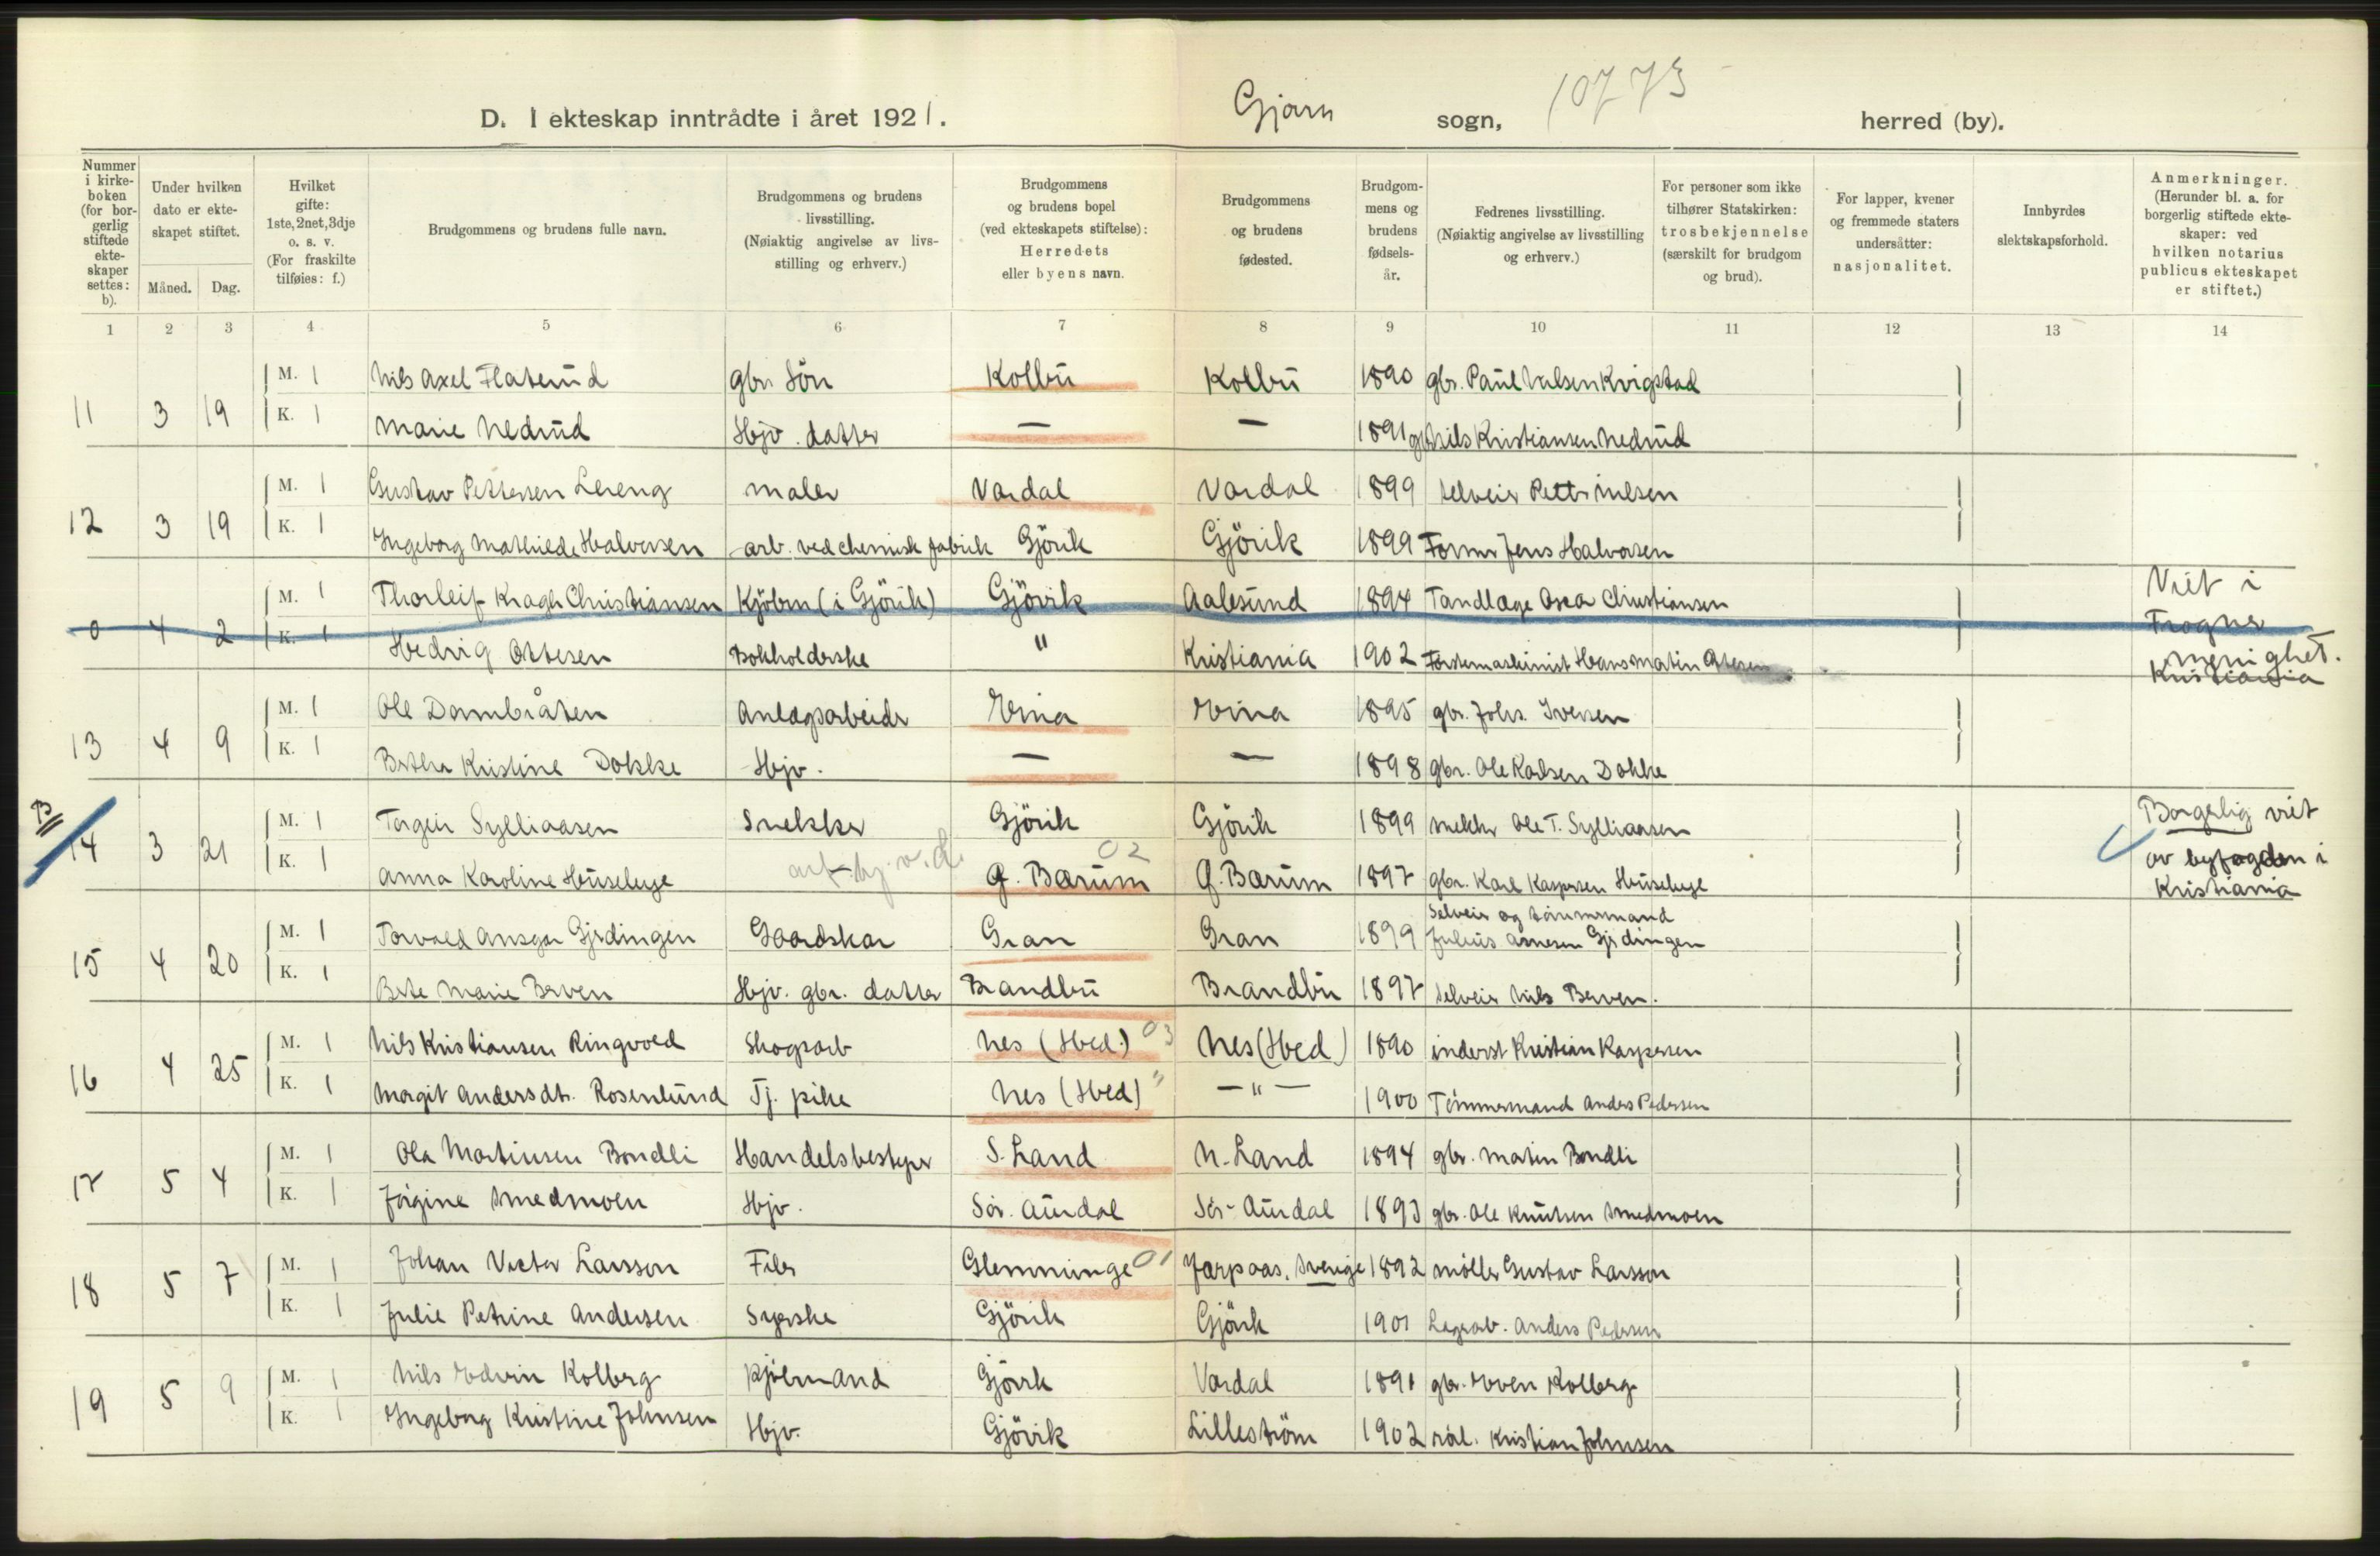 D. I ekteskap inntrådte i året 1921.
sogn, 10773 herred (by).
Nummer i kirkeboken (for borgerlig stiftede ekteskaper settes: b).
Under hvilken dato er ekteskapet stiftet.
Måned. Dag.
Hvilket gifte: 1ste, 2net, 3dje o. s. v. (For fraskilte tilføies: f.)
Brudgommens og brudens fulle navn.
Brudgommens og brudens livsstilling. (Nøiaktig angivelse av livsstilling og erhverv.)
Brudgommens og brudens bopel (ved ekteskapets stiftelse): Herredets eller byens navn.
Brudgommens og brudens fødested.
Brudgommens og brudens fødselsår.
Fedrenes livsstilling. (Nøiaktig angivelse av livsstilling og erhverv.)
For personer som ikke tilhører Statskirken: trosbekjennelse (særskilt for brudgom og brud).
For lapper, kvener og fremmede staters undersåtter: nasjonalitet.
Innbyrdes slektskapsforhold.
Anmerkninger. (Herunder bl. a. for borgerlig stiftede ekteskaper: ved hvilken notarius publicus ekteskapet er stiftet.)
1 2 3 4 5 6 7 8 9 10 11 12 13 14
11 3 19
M. 1 Nils Axel Flaterud gbr. Sön Kolbu Kolbu 1890 gbr. Paul Nilsen Kvigstad
K. 1 Marie Nedrud Hjv. datter — — 1891 gbr. Nils Kristiansen Nedrud
12 3 19
M. 1 Gustav Pettersen Lereng maler Vardal Vardal 1899 selveier Petter Nilsen
K. 1 Ingeborg Mathilde Halvorsen arb. ved chemisk fabrik Gjövik Gjövik 1899 Former Jens Halvorsen
0 4 2
M. 1 Thorleif Kragh Christiansen Kjöbm (i Gjövik) Gjövik Aalesund 1894 Tandlæge Oscar Christiansen
K. 1 Hedvig Ottesen Bokholderske " Kristiania 1902 Förstemaskinist Hans Martin Ottesen
Viet i Frogner menighet. Kristiania
13 4 9
M. 1 Ole Dambråten Anlægsarbeider Eina Eina 1895 gbr. Johs. Iversen
K. 1 Berthe Kristine Dokke Hjv. — — 1898 gbr. Ole Karlsen Dokke
B
14 3 21
M. 1 Torgeir Sylliaasen Snekker Gjövik Gjövik 1899 snekker Ole T. Sylliaasen
K. 1 Anna Karoline Husebye 02 Ø. Bærum Ø. Bærum 1897 gbr. Karl Kaspersen Husebye
Borgerlig viet av byfogden i Kristiania
15 4 20
M. 1 Torvald Ansgar Gjerdingen Gaardskar Gran Gran 1899 Selveier og tömmermand Julius Arnesen Gjerdingen
K. 1 Berte Marie Berven Hjv. gbr. datter Brandbu Brandbu 1897 selveier Nils Berven.
16 4 25
M. 1 Nils Kristiansen Ringvold Skogsarb Nes (Hed.) 03 Nes (Hed.) 1890 inderst Kristian Kaspersen
K. 1 Margit Andersdtr. Rosenlund Tj. pike Nes (Hed) " — " — 1900 Tömmermand Anders Pedersen
17 5 4
M. 1 Ola Martinsen Bondli Handelsbestyrer S. Land N. Land 1894 gbr. Martin Bondli
K. 1 Jörgine Smedmoen Hjv. Sör. Aurdal Sör-Aurdal 1893 gbr. Ole Knutsen Smedmoen
18 5 7
M. 1 Johan Victor Larsson Filer Glemminge 01 Jærpaas, Sverige 1892 möller Gustav Larsson
K. 1 Julie Petrine Andersen Syerske Gjövik Gjövik 1901 Lagerarb. Anders Pedersen
19 5 9
M. 1 Nils Edvin Kolberg Kjölmand Gjövik Vardal 1891 gbr. Even Kolberg
K. 1 Ingeborg Kristine Johnsen Hjv. Gjövik Lilleström 1902 Kristian Johnsen